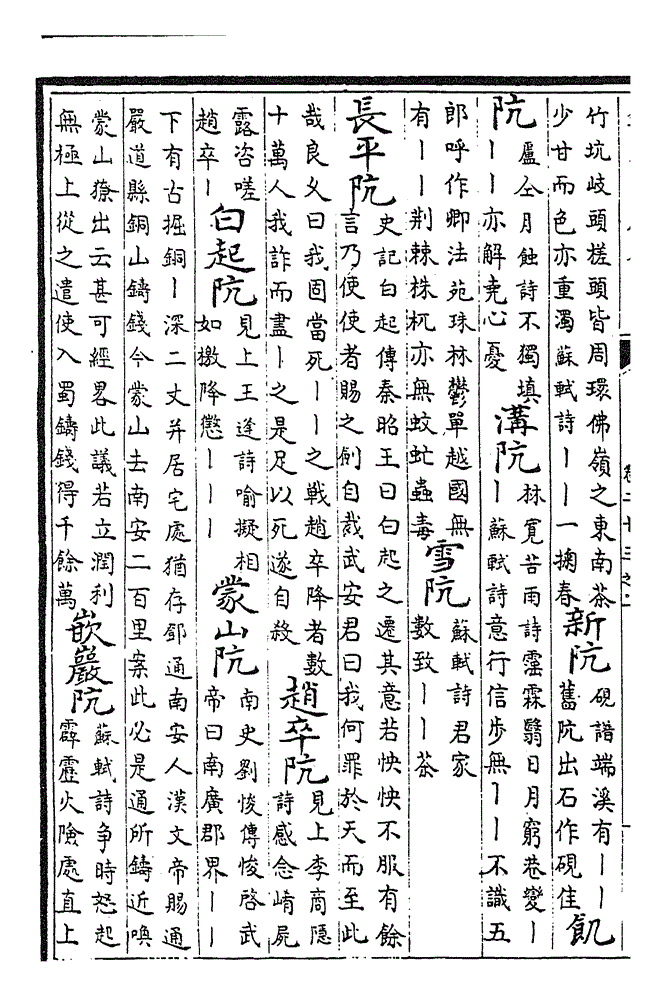 竹坑岐頭槎頭皆周環佛嶺之東南茶
少甘而色亦重濁蘇軾詩丨丨一掬春
新阬
硯譜端溪有丨丨
舊阬出石作硯佳
飢
阬
盧仝月蝕詩不獨填
丨丨亦解堯心憂
溝阬
林寬苦雨詩霪霖翳日月窮巷變丨
丨蘇軾詩意行信步無丨丨不識五
郎呼作卿法苑珠林鬱單越國無
有丨丨荆棘株杌亦無蚊虻蟲毒
雪阬
蘇軾詩君家
數致丨丨茶
長平阬
史記白起傳秦昭王曰白起之遷其意若怏怏不服有餘
言乃使使者賜之劍自裁武安君曰我何罪於天而至此
哉良久曰我固當死丨丨之戰趙卒降者數
十萬人我詐而盡丨之是足以死遂自殺
趙卒阬
見上李商隱
詩感念崤屍
露咨嗟
趙卒丨
白起阬
見上王逢詩喻擬相
如檄降懲丨丨丨
蒙山阬
南史劉悛傳悛啓武
帝曰南廣郡界丨丨
下有古掘銅丨深二丈并居宅處猶存鄧通南安人漢文帝賜通
嚴道縣銅山鑄錢今蒙山去南安二百里案此必是通所鑄近喚
蒙山獠出云甚可經畧此議若立潤利
無極上從之遣使入蜀鑄錢得千餘萬
嵌巖阬
蘇軾詩争時怒起
霹靂火險處直上